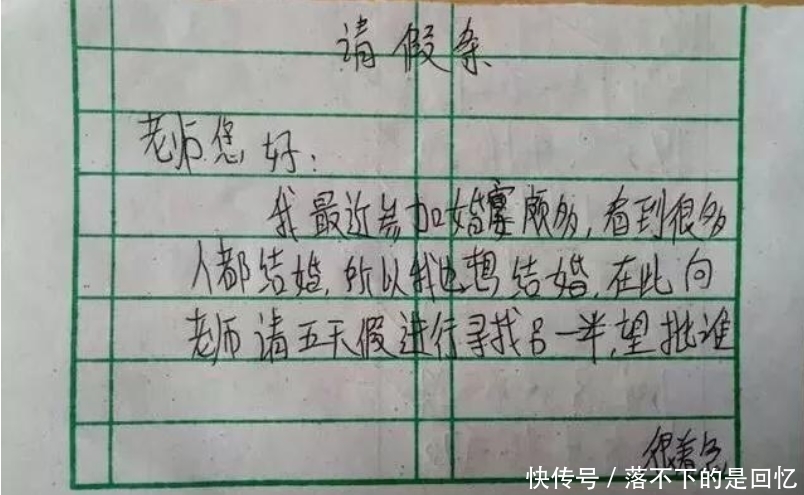 请假条
老师您好：
我最近参加婚宴颇多，看到很多
人都结婚，所以我也想结婚，在此向
老师请五天假进行寻找另一半，望批准
快传号 / 落不下的是回忆